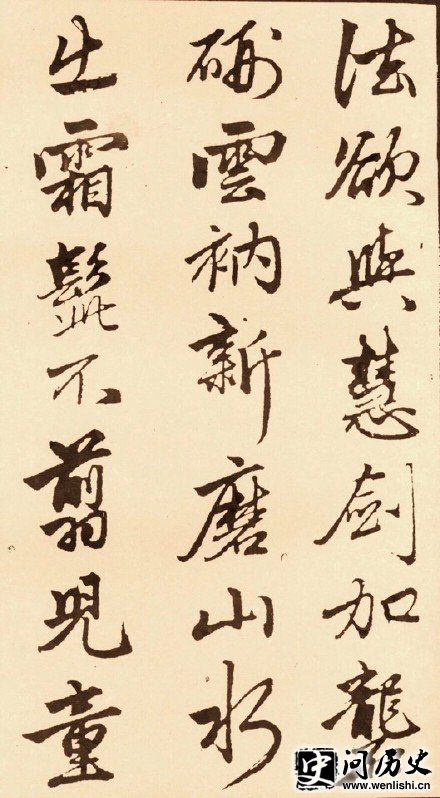 法欲與慧劍加礱
硎雲衲新磨山水
出霜髭不翦兒童
问历史
www.wenlishi.cn